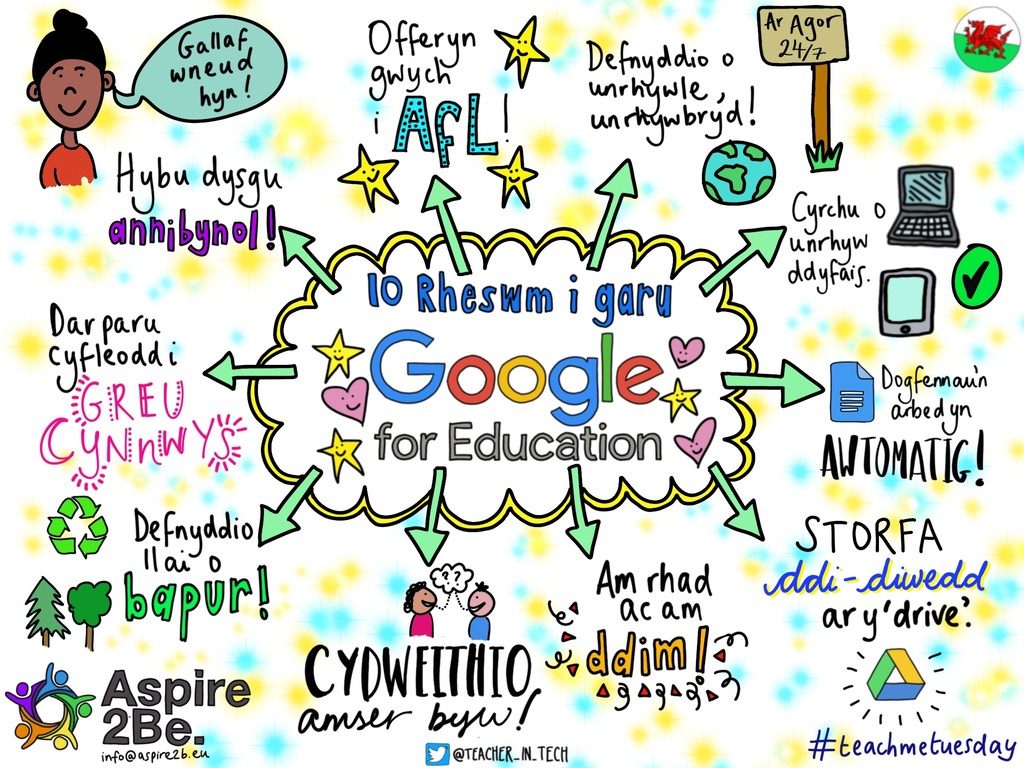 Gallaf
wneud
hyn!
Hybu dysgu
annibynol!
Offeryn
gwych
i AfL!
Defnyddio o
unrhywle,
unrhywbryd!
Ar Agor
24/7
Cyrchu o
unrhyw
ddyfais.
10 Rheswm i garu
Google
for Education
Darparu
cyfleoddi
GREU
CYNnWYS
Dogfennau'n
arbed yn
AWTOMATIG!
Defnyddio
llai o
bapur!
? ?
CYDWEITHIO
amser byw!
Am rhad
ac am
ddim!
STORFA
ddi-diwedd
ar y 'drive'.
Aspire
2Be.
info@aspire2b.eu
@TEACHER_IN_TECH
#teachmetuesday